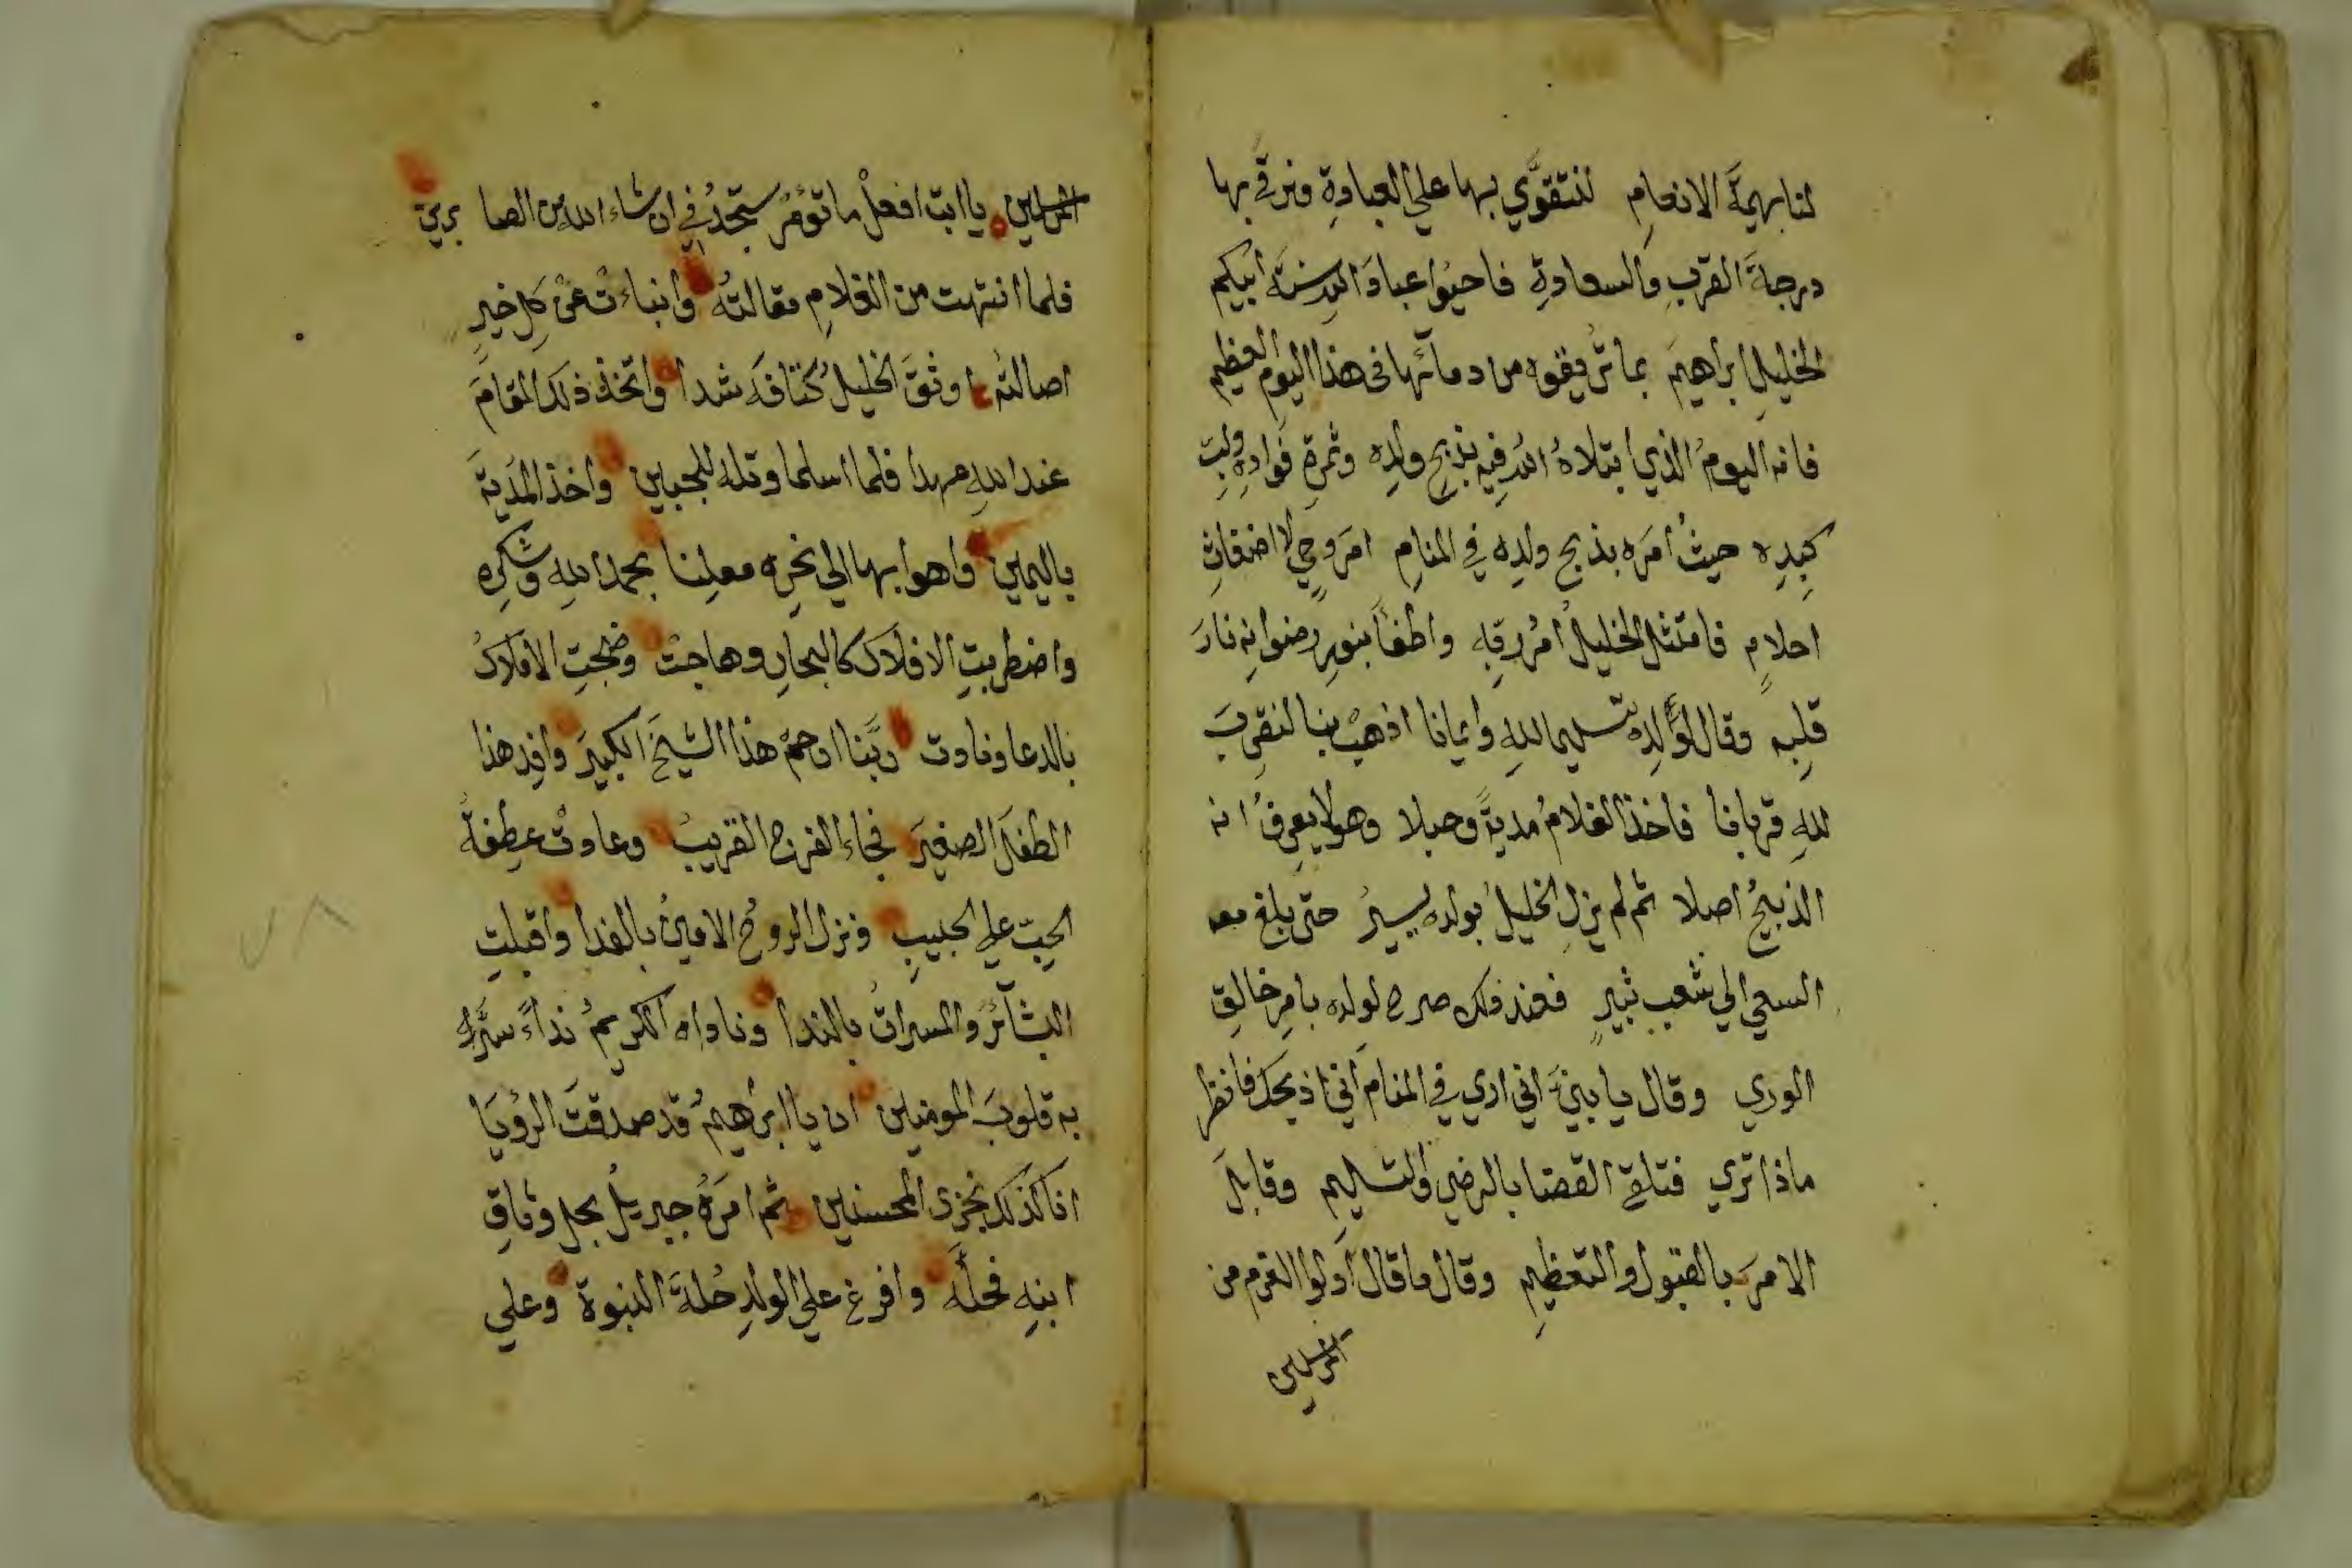 لنا بهيمةَ الانعامِ لنتقوَّي بها علي العبادةِ ونرقَي بها
درجةَ القربِ والسعادةِ فاحيُوا عبادَ اللهِ سنةَ ابيكم
الخليلِ ابراهيمَ بما تُريقوه من دمآئها في هذا اليوم العظيم
فانه اليومُ الذي ابتلاهُ اللهُ فيه بذبحِ ولدِه وثمرةِ فوادِهِ
كبِدِه حيثُ امَره بذبحِ ولدِه في المنامِ امرَ وحيٍ لا اضغاثِ
احلامٍ فامتثل الخليلُ امرَ ربِه واطفأ بنورِ رضوانِه نارَ
قلبِه وقال لوَلدِه تسليما للهِ وايمانا اذهبْ بنا لنقرِبَ
للهِ قربانا فاخذ الغلامُ مديةً وحبلا وهو لا يعرفُ انه
الذبيحُ اصلا ثم لم يزلِ الخليلُ بولده يسيرُ حتى بلغ معه
السعي الي شعبِ ثبيرٍ فعند ذلك صرح لولده بامرِ خالقِ
الوري وقال يا بنيَّ اني اري في المنام اَني اذبحك فانظر
ماذا تري فتلقي القضا بالرضي والتسليمِ وقابلَ
الامرَ بالقبول والتعظيمِ وقال ما قال اولوا العزم من
المرسلين
المرسلين يا ابت افعلْ ما تؤمرُ ستجدُني ان شاء الله من الصابرين
فلما انتهت من الغلامِ مقالتُه وانباءتْ عن كلِ خيرٍ
اصالتُه اوثقَ الخليلُ كتافَه شدا واتخذ ذلك المقامَ
عند اللهِ عهدا فلما اسلما وتله للجبين واخذ المُديةَ
باليمين واهوا بها الي نحرِه معلِنا بحمدِ اللهِ وشكرِه
واضطربتِ الافلاك كالبحارِ وهاجتْ وضجتِ الاملاكُ
بالدعا ونادت ربَّنا ارحمْ هذا الشيخَ الكبيرَ وافدِ هذا
الطفلَ الصغيرَ فجاء الفرج القريبُ وعادتْ عطفةُ
الحِبّ علي الحبيبِ ونزل الروحُ الامينُ بالفدا واقبلتِ
البشآئرُ والمسراتُ بالندا وناداه الكريمُ نداءً سَرَّ
به قلوبَ المومنين ان يا ابراهيمُ قد صدقتَ الرؤيا
انا كذلك نجزي المحسنين ثم امرَهُ جبريلُ بحلِ وثاقِ
ابنِه فحلَّه وافرغ علي الولدِ حُلةَ النبوة وعلي